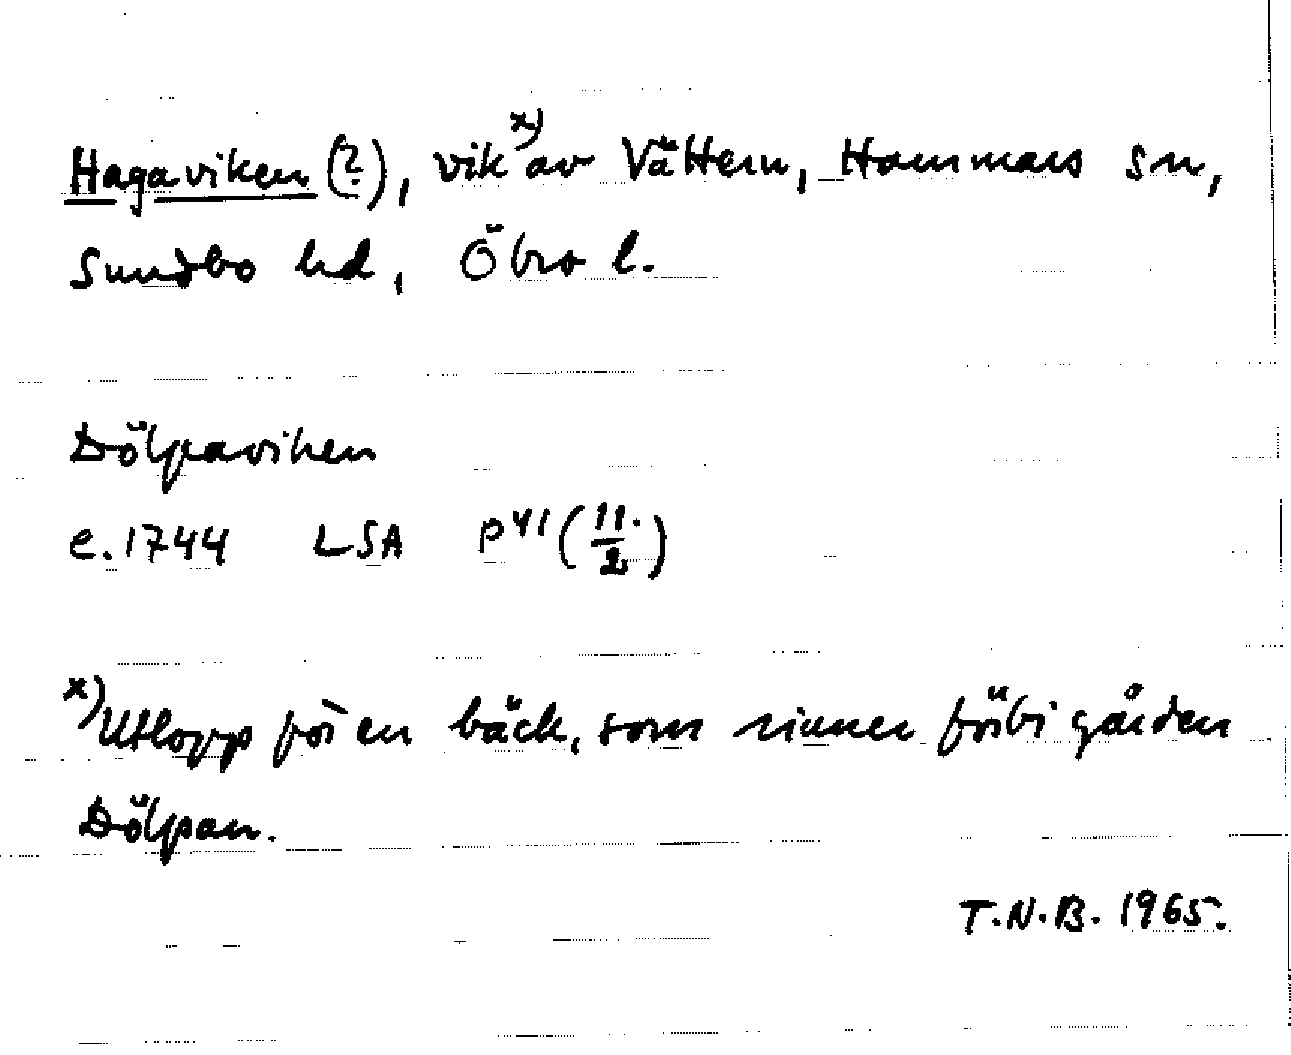 Hagaviken (?), vik x) av Vättern, Hammars sn,
Sundbo hd, Öbro l.
Dölpaviken
e. 1744 LSA P 41 (11./2)
x) Utlopp för en bäck, som rinner förbi gården
Dölpan.
T.N.B. 1965.